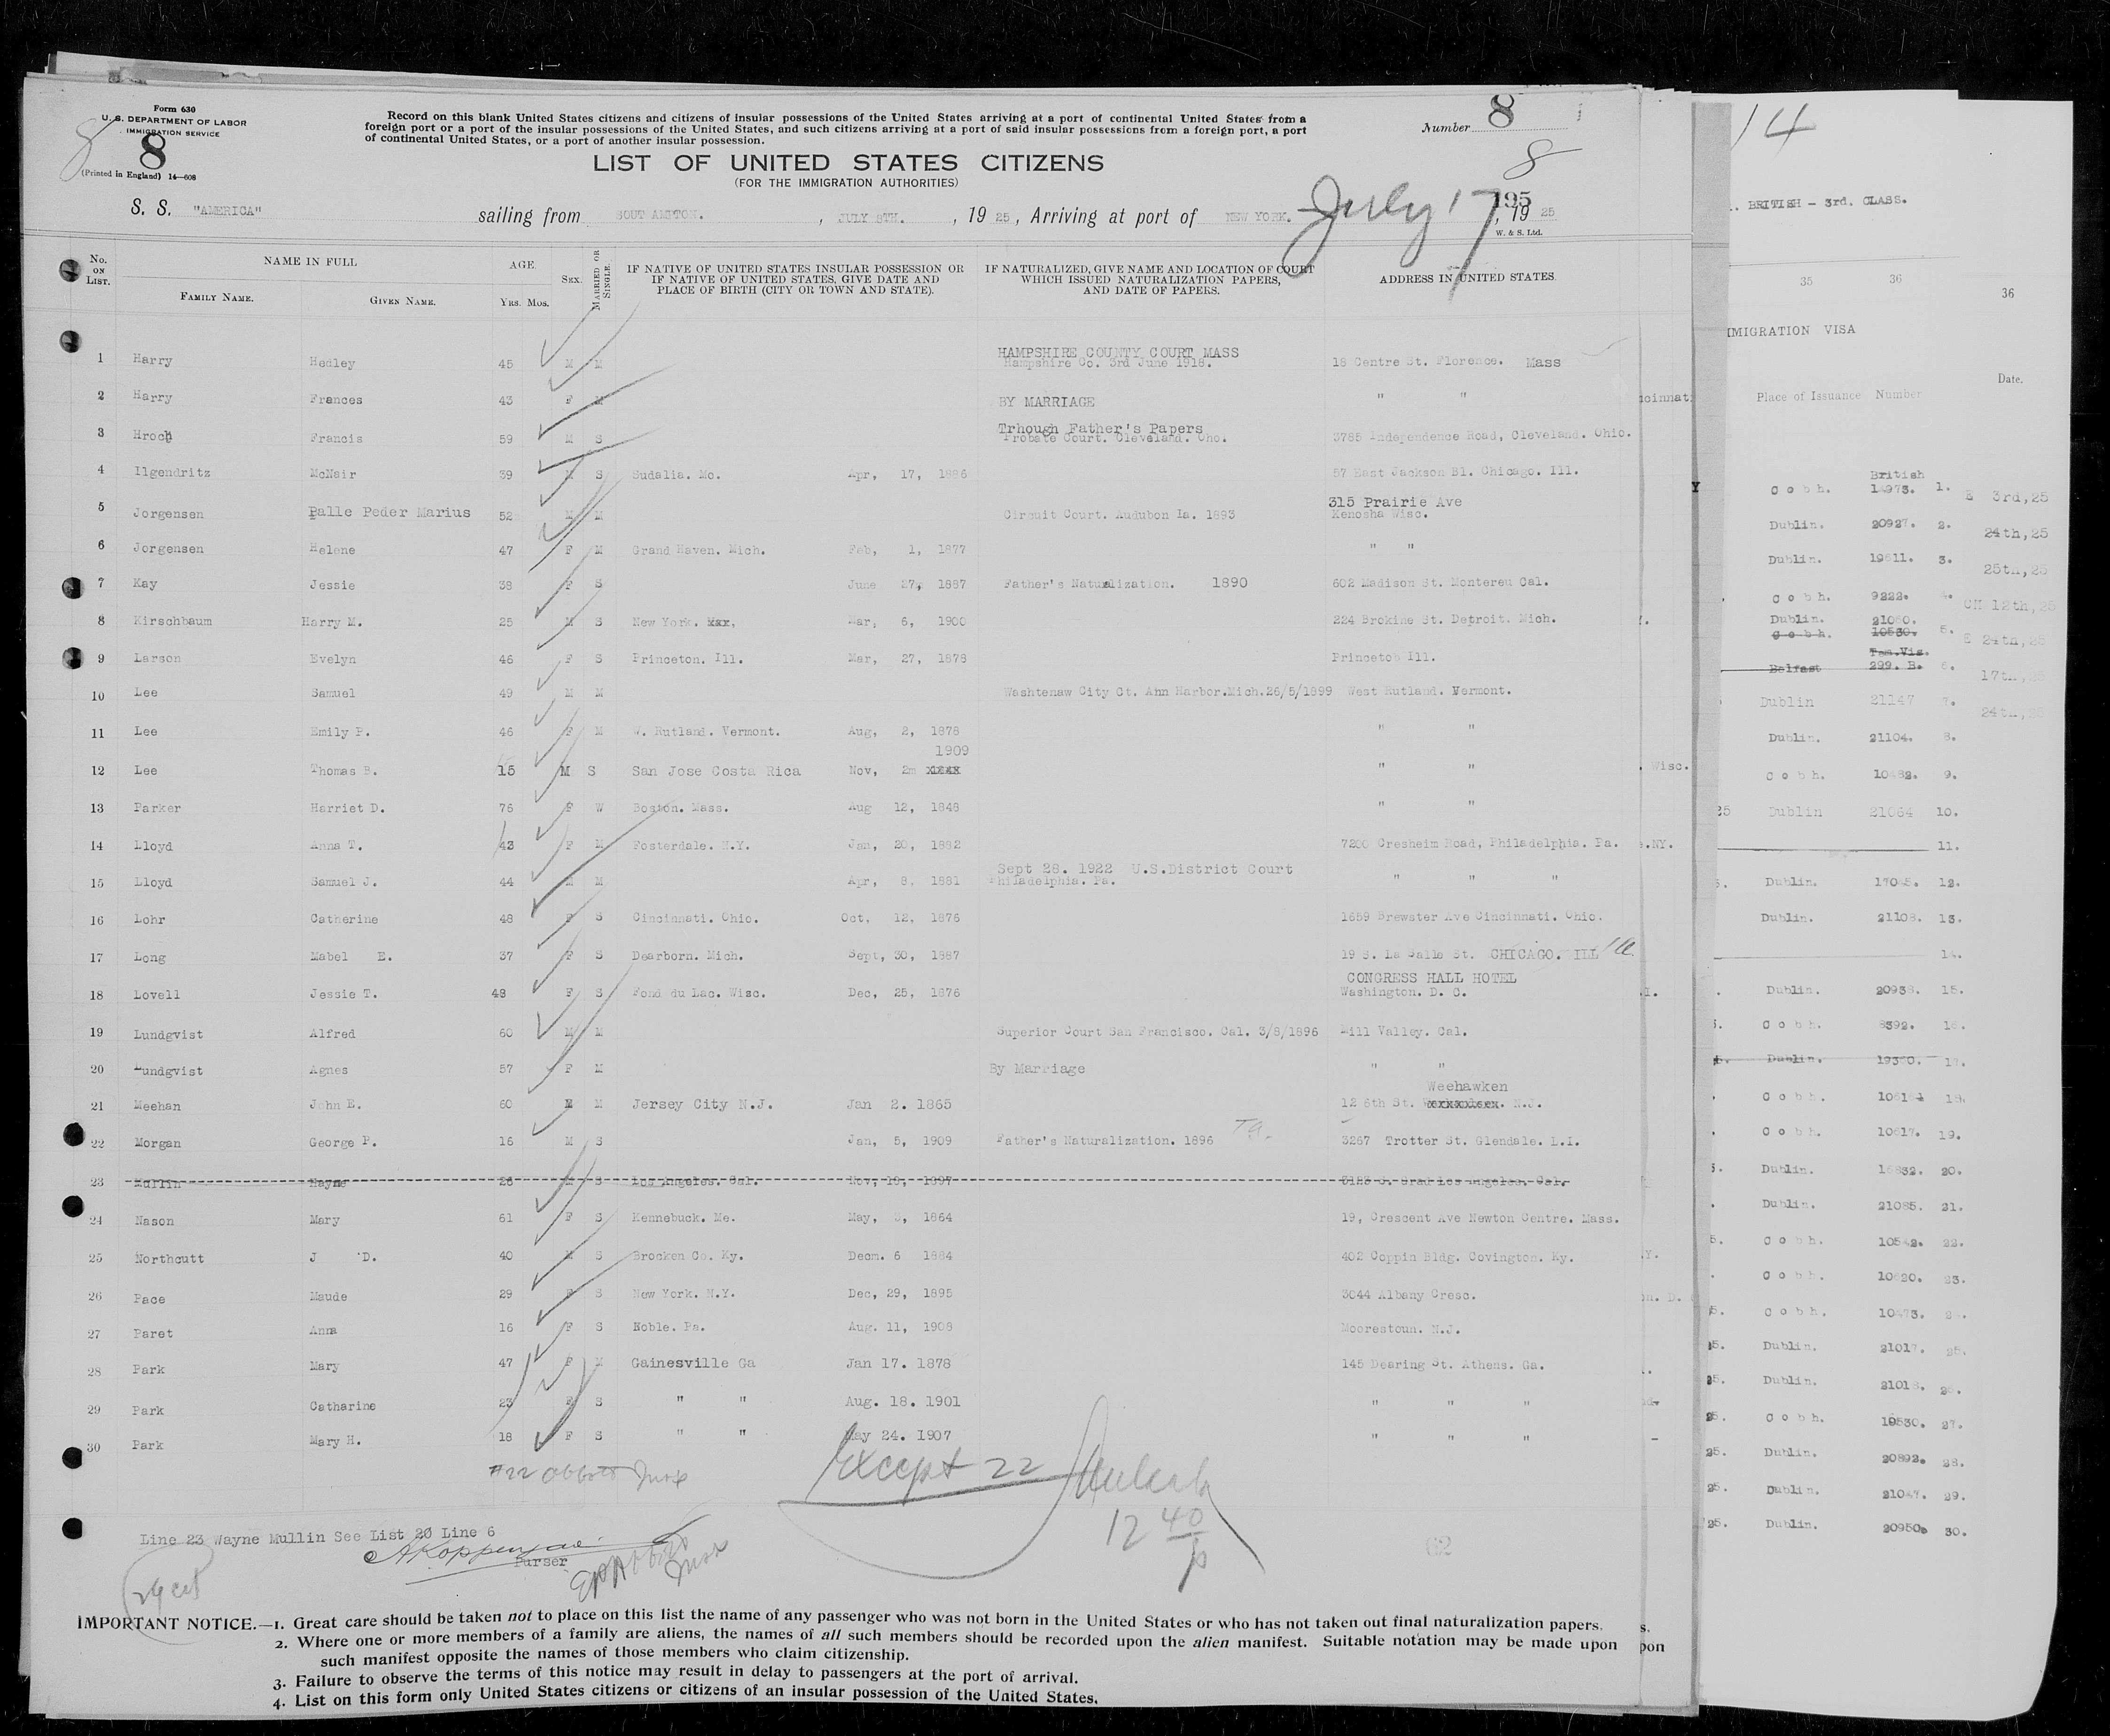 Form 630
U. S. DEPARTMENT OF LABOR
IMMIGRATION SERVICE
8
8
(Printed in England) 14—608
Record on this blank United States citizens and citizens of insular possessions of the United States arriving at a port of continental United States from a
foreign port or a port of the insular possessions of the United States, and such citizens arriving at a port of said insular possessions from a foreign port, a port
of continental United States, or a port of another insular possession.
Number 8
8
LIST OF UNITED STATES CITIZENS
(FOR THE IMMIGRATION AUTHORITIES)
S. S. "AMERICA" sailing from SOUT AMPTON. , JULY 8TH. , 19 25, Arriving at port of NEW YORK. July 17 195 , 19 25
W. & S. Ltd.
No. ON LIST. NAME IN FULL AGE. SEX. MARRIED OR SINGLE. IF NATIVE OF UNITED STATES INSULAR POSSESSION OR IF NATIVE OF UNITED STATES, GIVE DATE AND PLACE OF BIRTH (CITY OR TOWN AND STATE). IF NATURALIZED, GIVE NAME AND LOCATION OF COURT WHICH ISSUED NATURALIZATION PAPERS, AND DATE OF PAPERS. ADDRESS IN UNITED STATES.
FAMILY NAME. GIVEN NAME. YRS. MOS.
HAMPSHIRE COUNTY COURT MASS
1 Harry Hedley 45 M M Hampshire Co. 3rd June 1918. 18 Centre St. Florence. Mass
2 Harry Frances 43 F M BY MARRIAGE " "
Trhough Father's Papers
3 Hroch Francis 59 M S Probate Court. Cleveland. Oho. 3785 Independence Road, Cleveland. Ohio.
4 Ilgendritz McNair 39 M S Sudalia. Mo. Apr, 17, 1886 57 East Jackson Bl. Chicago. Ill.
315 Prairie Ave
5 Jorgensen Palle Peder Marius 52 M M Circuit Court. Audubon Ia. 1893 Kenosha Wisc.
6 Jorgensen Helene 47 F M Grand Haven. Mich. Feb, 1, 1877 " "
7 Kay Jessie 38 F S June 27, 1887 Father's Naturalization. 1890 602 Madison St. Montereu Cal.
8 Kirschbaum Harry M. 25 M S New York. xxx, Mar, 6, 1900 224 Brokine St. Detroit. Mich.
9 Larson Evelyn 46 F S Princeton. Ill. Mar, 27, 1878 Princeton Ill.
10 Lee Samuel 49 M M Washtenaw City Ct. Ann Harbor.Mich.26/5/1899 West Rutland. Vermont.
11 Lee Emily P. 46 F M W. Rutland. Vermont. Aug, 2, 1878 " "
1909
12 Lee Thomas B. 15 M S San Jose Costa Rica Nov, 2m " "
13 Parker Harriet D. 76 F W Boston. Mass. Aug 12, 1848 " "
14 Lloyd Anna T. 43 F M Fosterdale. N.Y. Jan, 20, 1882 7200 Cresheim Road, Philadelphia. Pa.
Sept 28. 1922 U.S.District Court
15 Lloyd Samuel J. 44 M M Apr, 8, 1881 Philadelphia. Pa. " " "
16 Lohr Catherine 48 F S Cincinnati. Ohio. Oct. 12, 1876 1659 Brewster Ave Cincinnati. Ohio.
17 Long Mabel E. 37 F S Dearborn. Mich. Sept, 30, 1887 19 S. La Salle St. CHICAGO. ILL Ill.
CONGRESS HALL HOTEL
18 Lovell Jessie T. 48 F S Fond du Lac. Wisc. Dec, 25, 1876 Washington. D. C.
19 Lundgvist Alfred 60 M M Superior Court San Francisco. Cal. 3/8/1896 Mill Valley. Cal.
20 Lundgvist Agnes 57 F M By Marriage " "
Weehawken
21 Meehan John E. 60 M M Jersey City N.J. Jan 2. 1865 12 6th St. N.J.
22 Morgan George P. 16 M S Jan, 5, 1909 Father's Naturalization. 1896 3267 Trotter St. Glendale. L.I.
23 Mullin Wayne 26 M S Los Angeles. Cal. Nov, 18, 1897 Los Angeles. Cal.
24 Nason Mary 61 F S Kennebuck. Me. May, 1864 19, Crescent Ave Newton Centre. Mass.
25 Northcutt J D. 40 M S Brocken Co. Ky. Decm. 6 1884 402 Coppin Bldg. Covington. Ky.
26 Pace Maude 29 F S New York. N.Y. Dec, 29, 1895 3044 Albany Cresc.
27 Paret Anna 16 F S Noble. Pa. Aug. 11, 1908 Moorestoun. N.J.
28 Park Mary 47 F M Gainesville Ga Jan 17. 1878 145 Dearing St. Athens. Ga.
29 Park Catharine 23 F S " " Aug. 18. 1901 " " "
30 Park Mary H. 18 F S " " May 24. 1907 " " "
#22 Insp
Except 22
12 40/P
Line 23 Wayne Mullin See List 20 Line 6
Purser
62
IMPORTANT NOTICE.—1. Great care should be taken not to place on this list the name of any passenger who was not born in the United States or who has not taken out final naturalization papers.
2. Where one or more members of a family are aliens, the names of all such members should be recorded upon the alien manifest. Suitable notation may be made upon
such manifest opposite the names of those members who claim citizenship.
3. Failure to observe the terms of this notice may result in delay to passengers at the port of arrival.
4. List on this form only United States citizens or citizens of an insular possession of the United States.
14
BRITISH - 3rd. CLASS.
35 36 36
IMMIGRATION VISA
Date.
Place of Issuance Number
British
Cobh. 14973. 1. 3rd,25
Dublin. 20927. 2. 24th,25
Dublin. 19611. 3. 25th,25
Cobh. 9222. 12th,25
Dublin. 21060.
Cobh. 10530. 5. 24th,25
Belfast 299. B. 6. 17th,
Dublin 21147 24th,
Dublin. 21104. 8.
Cobh. 10482. 9.
25 Dublin 21064 10.
11.
Dublin. 17045. 12.
Dublin. 21108. 13.
14.
Dublin. 20938. 15.
Cobh. 8392. 16.
Dublin. 19360. 17.
Cobh. 18.
Cobh. 10617. 19.
Dublin. 20.
Dublin. 21085. 21.
Cobh. 10542. 22.
Cobh. 10620. 23.
Cobh. 10473.
Dublin. 21017. 25.
25. Dublin. 21018. 26.
25. Cobh. 10530. 27.
25. Dublin. 20892. 28.
25. Dublin. 21047. 29.
25. Dublin. 20950. 30.